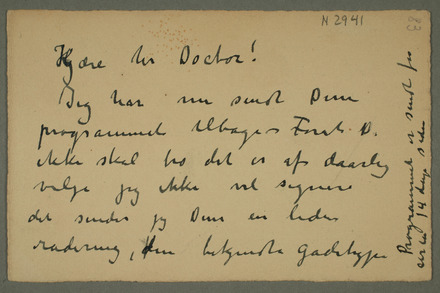 N 2941
Kjære hr Doctor!
Jeg har nu sendt Dem
programmet tilbage – Forat D.
ikke skal tro det er af daarlig
vilje jeg ikke vil signere
det sender jeg Dem en liden
radering, den bekjendte Gadetype
Programmet er sendt for
circa 14 dage siden